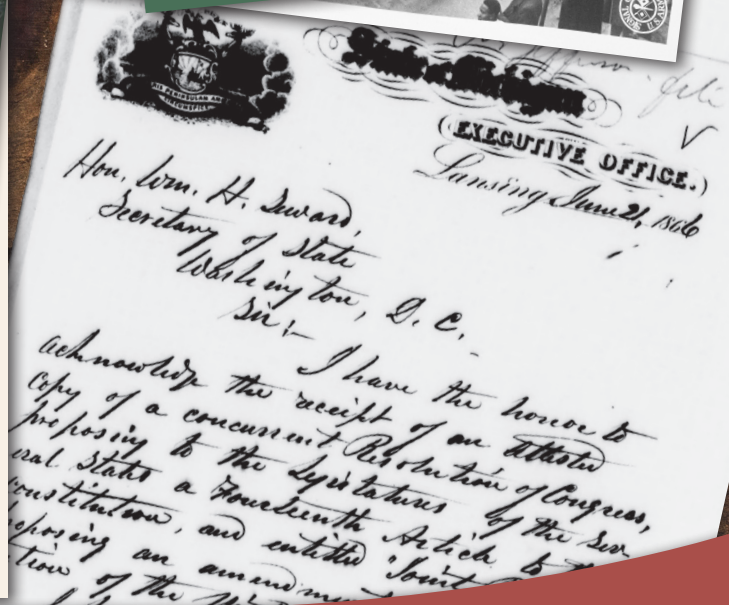 SI QUAERIS PENINSULAM AM
CIRCUMSPICE
State of Michigan,
(EXECUTIVE OFFICE.)
Lansing June 21, 1866
Hon. Wm. H. Seward,
Secretary of State
Washington, D. C.
Sir:-
I have the honor to
acknowledge the receipt of an attested
copy of a concurrent Resolution of Congress,
proposing to the Legislatures of the Sev
eral States a Fourteenth Article to the
Constitution, and entitled "Joint
proposing an amendment
tion of the